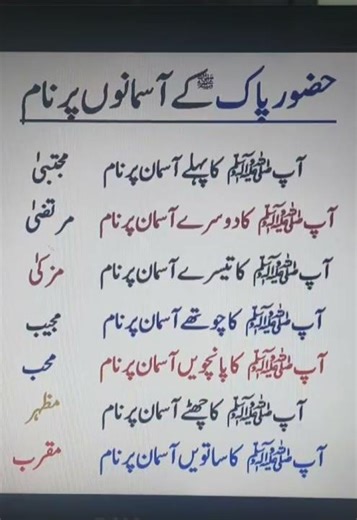 حضور پاک ﷺ کے آسمانوں پر نام
آپ ﷺ کا پہلے آسمان پر نام مجتبیٰ
آپ ﷺ کا دوسرے آسمان پر نام مرتضیٰ
آپ ﷺ کا تیسرے آسمان پر نام مزکیٰ
آپ ﷺ کا چوتھے آسمان پر نام مجیب
آپ ﷺ کا پانچویں آسمان پر نام محب
آپ ﷺ کا چھٹے آسمان پر نام مظہر
آپ ﷺ کا ساتویں آسمان پر نام مقرب